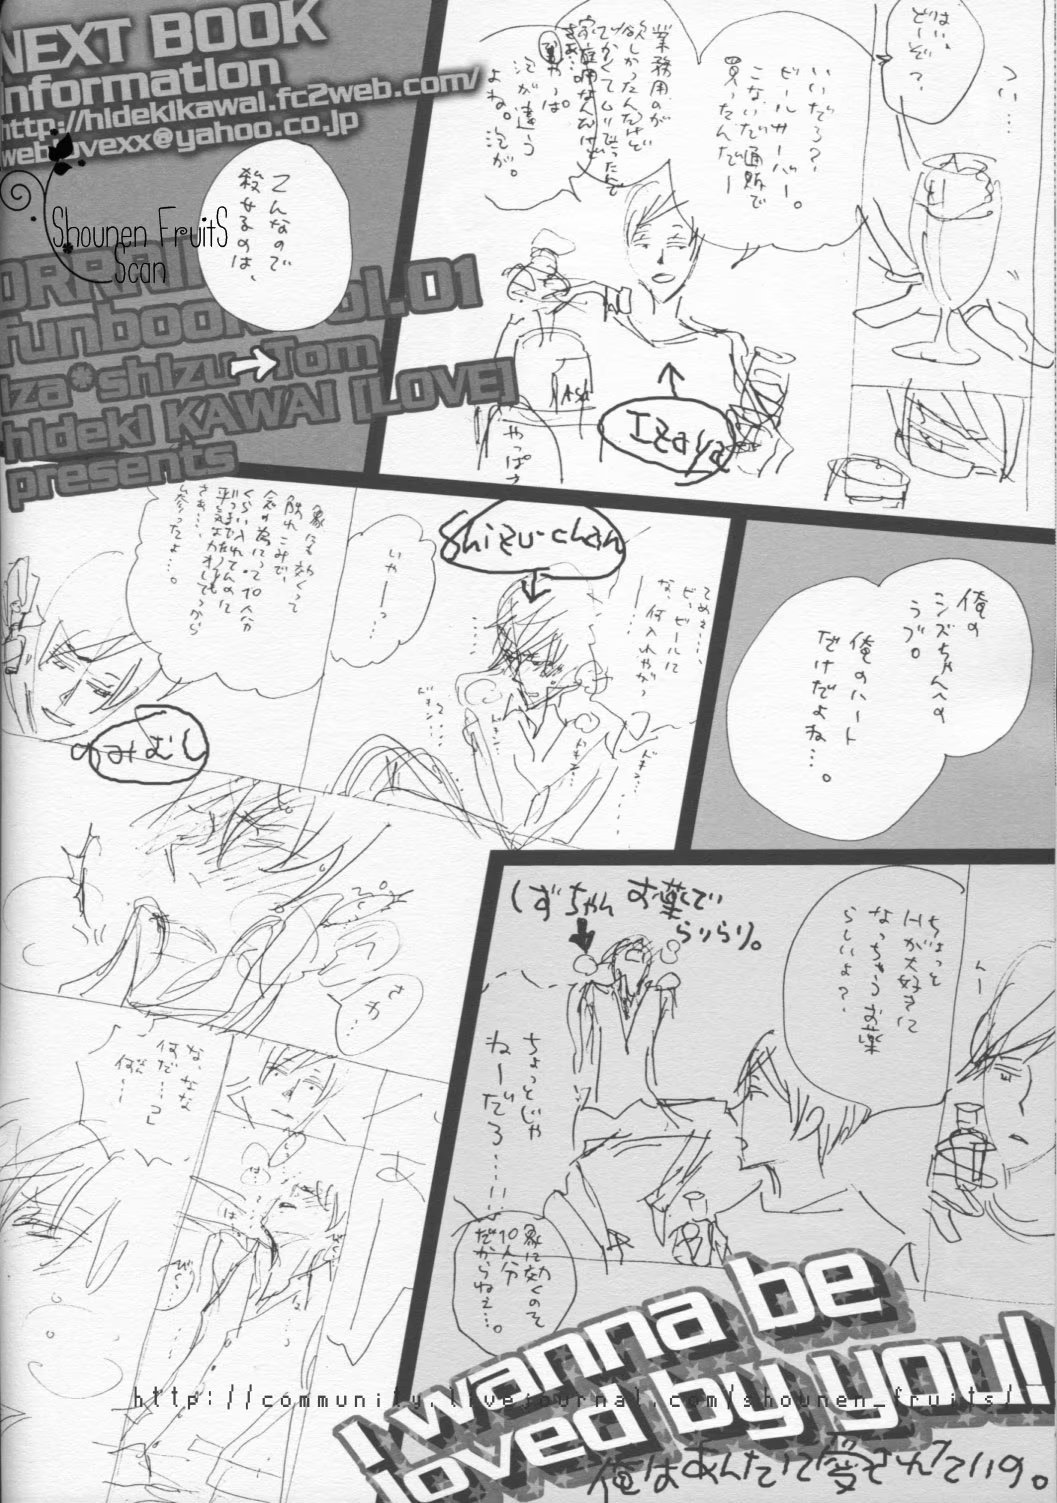 NEXT BOOK
Information
http://hidekikawai.fc2web.com/
weblovexx@yahoo.co.jp
Shounen FruitS
Scan
funbook vol.01
Iza*shizu→Tom
hideki KAWAI [LOVE]
presents
はい、
どーぞ?
つい…
いいだろ?
ビールサーバー。
こないだ通販で
買ったんだー
業務用のが
欲しかったんだけど
でかくてムリだったんで
家庭用なんだけど
さぁ…
やっぱ
泡が違う
よね。泡が。
Izaya
やっぱさ
こんなので
殺せるのは、
俺の
シズちゃんへの
ラブ。
俺のハート
だけだよね…。
てめぇ……、
ビ、ビールに
な、何入れやがっ
Shizu-chan
ドキン…
いやーっ…
象にも効くって
触れこみで、
念の為にって10人分
くらい入れて
平気なカオしてっから
さぁ…、
参ったよ…。
のみむし
さわ
…
な、なな
何だ…コレ
何…
しずちゃん お薬で
らりらり。
ちょっと
Hが大好きに
なっちゃうお薬
らしいよ?
んー
ちょっとじゃ
ねーだろ……!!
象に効くので
10人分
だからねぇ…。
I wanna be
loved by you!
http://community.livejournal.com/shounen_fruits/
俺はあんたに愛されたいの。